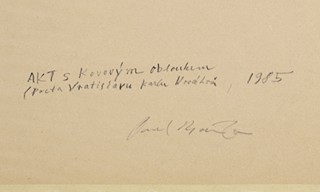 AKT s kovovým obloukem
(Pocta Vratislavu Karlu Novákovi, 1985
Pavel